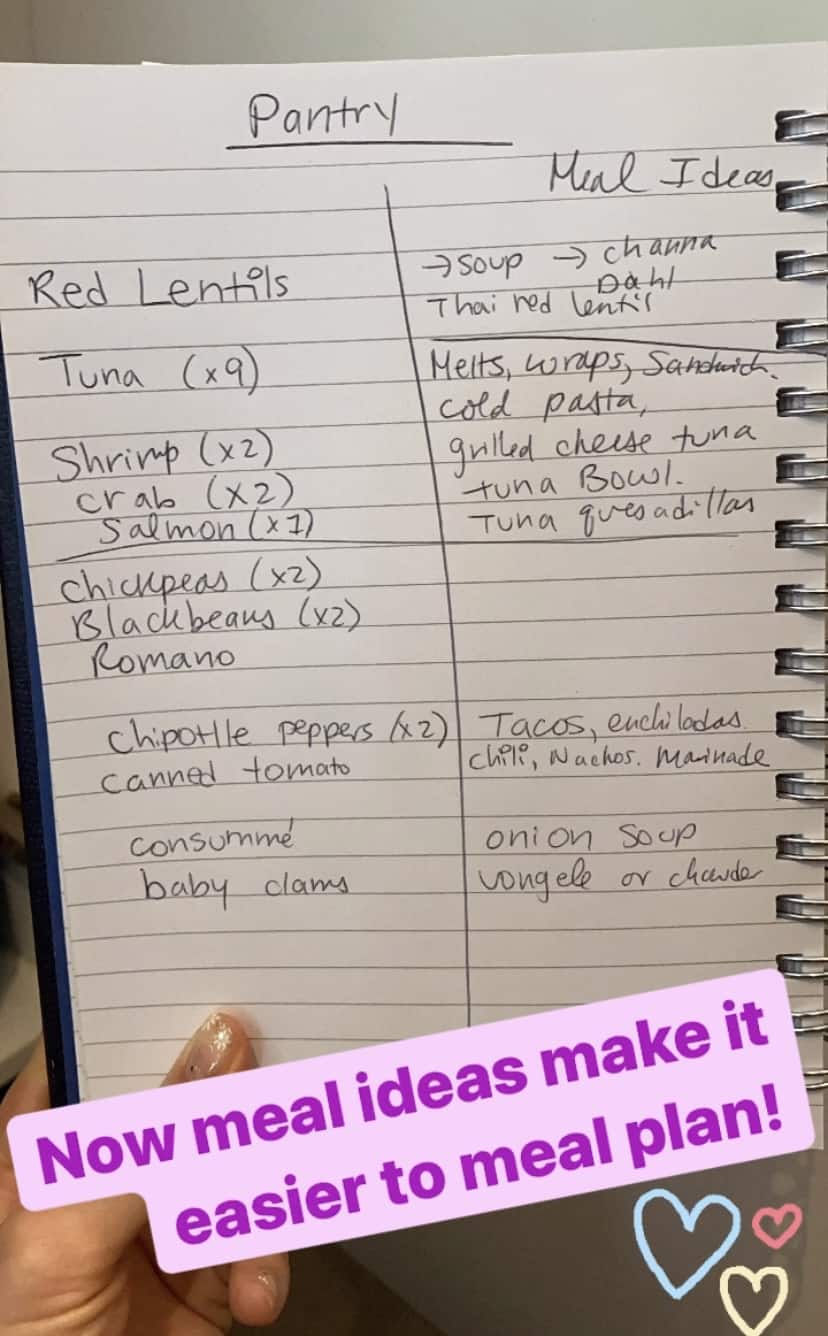 Pantry
Meal Ideas
Red Lentils
→ soup → channa
Dahl
Thai red lentil
Tuna (x9)
Melts, wraps, Sandwich.
cold pasta,
Shrimp (x2)
grilled cheese tuna
crab (x2)
tuna Bowl.
Salmon (x1)
Tuna quesadillas
chickpeas (x2)
Blackbeans (x2)
Romano
Chipotlle peppers (x2)
Tacos, enchiladas.
canned tomato
Chili, Nachos. Marinade
consummé
onion soup
baby clams
vongele or chowder
Now meal ideas make it
easier to meal plan!